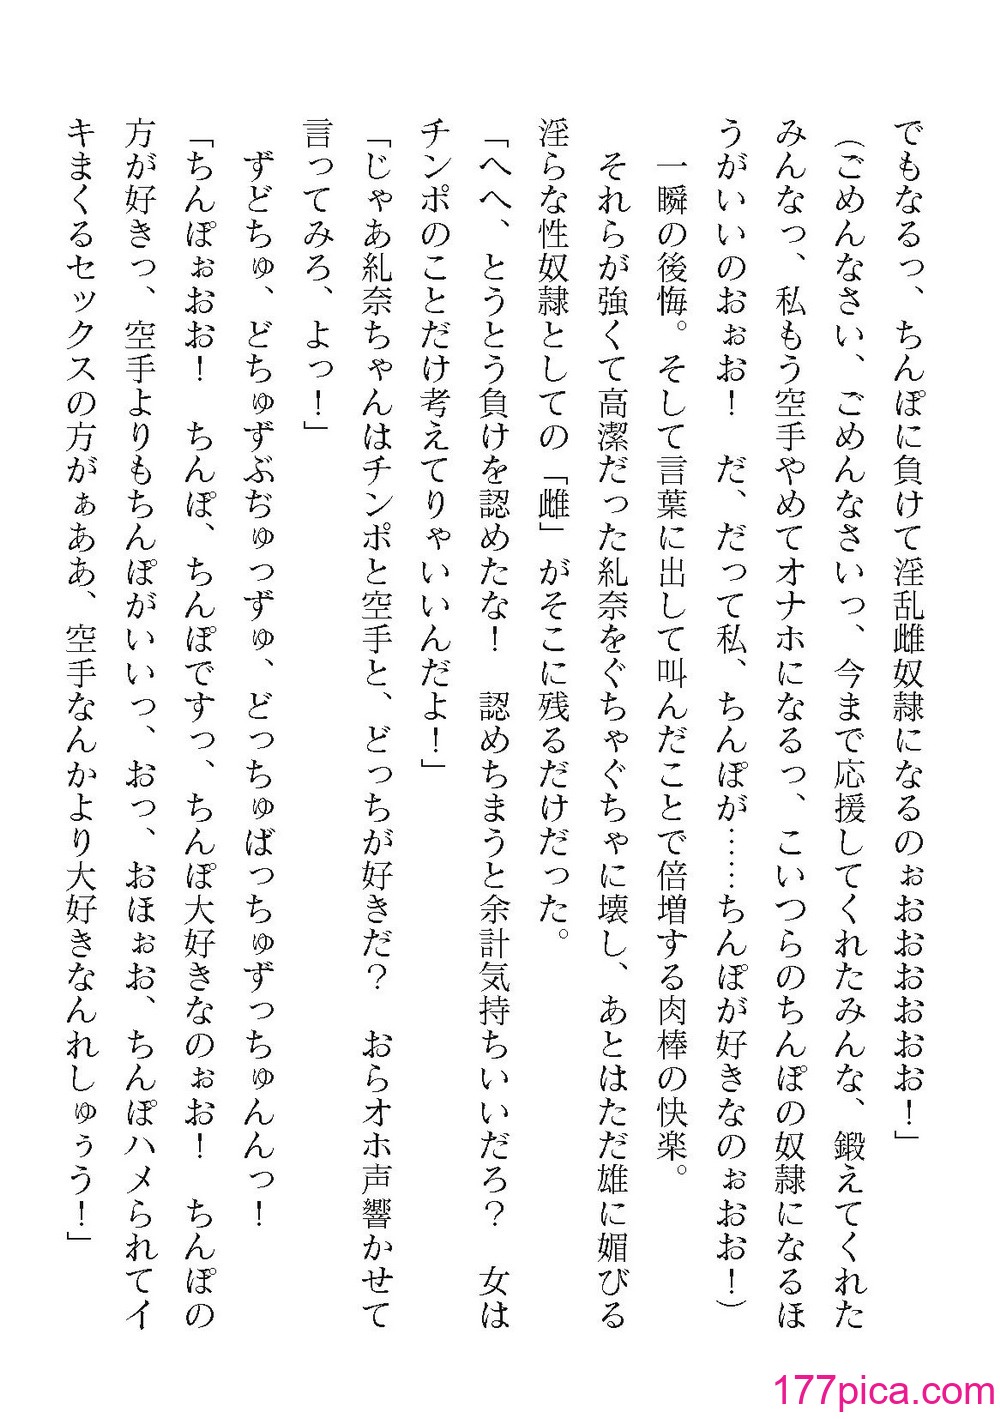 でもなるっ、ちんぽに負けて淫乱雌奴隷になるのぉおおおおおお！」
（ごめんなさい、ごめんなさいっ、今まで応援してくれたみんな、鍛えてくれた
みんなっ、私もう空手やめてオナホになるっ、こいつらのちんぽの奴隷になるほ
うがいいのおぉお！　だ、だって私、ちんぽが……ちんぽが好きなのぉおお！）
　一瞬の後悔。そして言葉に出して叫んだことで倍増する肉棒の快楽。
　それらが強くて高潔だった糺奈をぐちゃぐちゃに壊し、あとはただ雄に媚びる
淫らな性奴隷としての「雌」がそこに残るだけだった。
「へへ、とうとう負けを認めたな！　認めちまうと余計気持ちいいだろ？　女は
チンポのことだけ考えてりゃいいんだよ！」
「じゃあ糺奈ちゃんはチンポと空手と、どっちが好きだ？　おらオホ声響かせて
言ってみろ、よっ！」
　ずどちゅ、どちゅずぶぢゅっずゅ、どっちゅばっちゅずっちゅんんっ！
「ちんぽぉおお！　ちんぽ、ちんぽですっ、ちんぽ大好きなのぉお！　ちんぽの
方が好きっ、空手よりもちんぽがいいっ、おっ、おほぉお、ちんぽハメられてイ
キまくるセックスの方がぁああ、空手なんかより大好きなんれしゅぅう！」
177pica.com